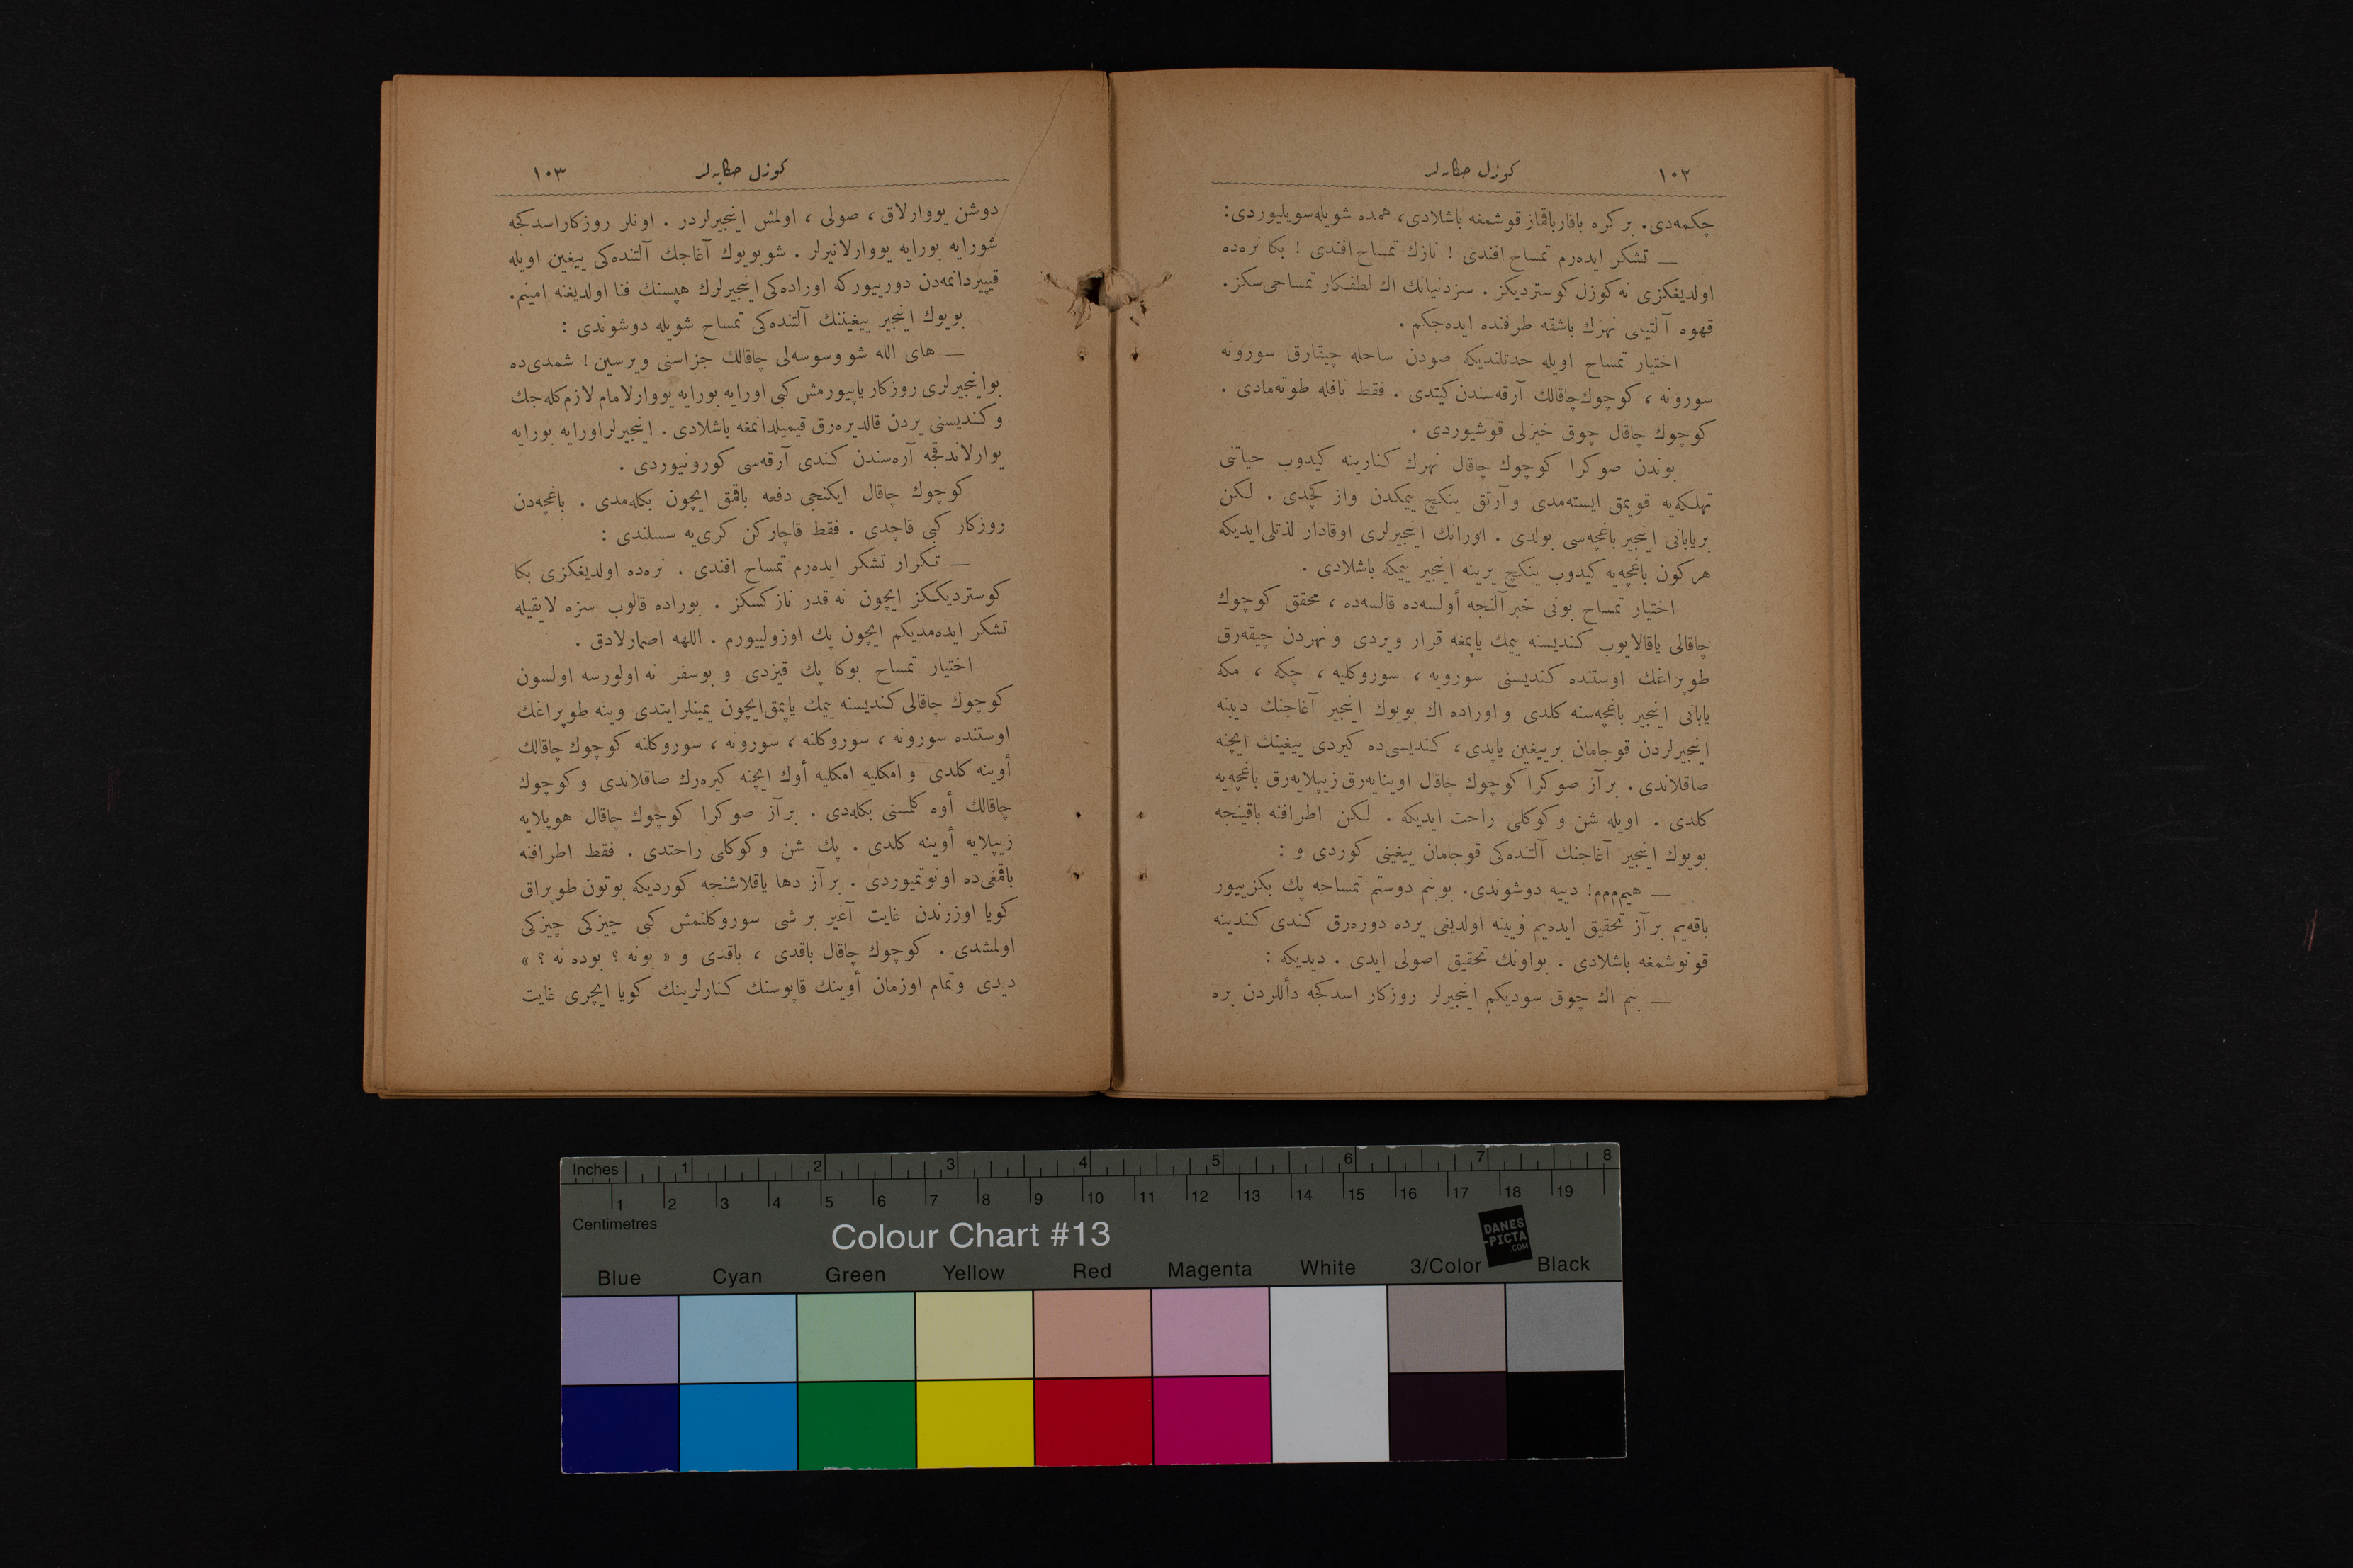 ١٠٢ كوزل حكايه‌لر
چكمه‌دی. بر كره باقار باقماز قوشمغه باشلادی، همده شويله سويليوردی:
— تشكر ايده‌رم تمساح افندی ! نازك تمساح افندی ! بكا نره‌ده
اولديغكزی نه كوزل كوسترديكز . سز دنيانك اك لطفكار تمساحی سكز.
قهوه آلتيی نهرك باشقه طرفنده ايده‌جكم .
اختيار تمساح اويله حدتلنديكه صودن ساحله چيقارق سورونه
سورونه ، كوچوك چاقالك آرقه‌سندن كيتدی . فقط نافله طوته‌مادی .
كوچوك چاقال چوق خيزلی قوشيوردی .
بوندن صوكرا كوچوك چاقال نهرك كنارينه كيدوب حياتنی
تهلكه‌يه قويمق ايسته‌مدی و آرتق ينكچ ييمكدن واز كچدی . لكن
بر يابانی اينجير باغچه‌سی بولدی . اورانك اينجيرلری اوقادار لذتلی ايديكه
هر كون باغچه‌يه كيدوب ينكچ يرينه اينجير ييمكه باشلادی .
اختيار تمساح بونی خبر آلنجه أولسه‌ده قالسه‌ده ، محقق كوچوك
چاقالی ياقالايوب كنديسنه ييمك ياپمغه قرار ويردی و نهردن چيقه‌رق
طوپراغك اوستنده كنديسنی سورويه ، سوروكليه ، چكه ، مكه
يابانی اينجير باغچه‌سنه كلدی و اوراده اك بويوك اينجير آغاجنك ديبنه
اينجيرلردن قوجامان بر ييغين ياپدی، كنديسی‌ده كيردی ييغينك ايچنه
صاقلاندی . بر آز صوكرا كوچوك چاقال اوينايه‌رق زيپلايه‌رق باغچه‌يه
كلدی . اويله شن و كوكلی راحت ايديكه . لكن اطرافنه باقينجه
بويوك اينجير آغاجنك آلتنده‌كی قوجامان ييغينی كوردی و :
— هيم‌م‌م‌م! دييه دوشوندی. بو بنم دوستم تمساحه پك بكزييور
باقه‌يم بر آز تحقيق ايده‌يم دييه اولديغی يرده دوره‌رق كندی كندينه
قونوشمغه باشلادی . بو اونك تحقيق اصولی ايدی . ديديكه :
— بنم اك چوق سوديكم اينجيرلر روزكار اسدكجه دأللردن يره
كوزل حكايه‌لر ١٠٣
دوشن يووارلاق ، صولی ، اولمش اينجيرلردر . اونلر روزكار اسدكجه
شورايه بورايه يووارلانيرلر . شو بويوك آغاجك آلتنده‌كی ييغين اويله
قيپيردانمه‌دن دورييوركه اوراده‌كی اينجيرلرك هپسنك فنا اولديغنه امينم.
بويوك اينجير ييغيننك آلتنده‌كی تمساح شويله دوشوندی :
— های الله شو وسوسه‌لی چاقالك جزاسنی ويرسين ! شمدی‌ده
بو اينجيرلری روزكار ياپيورمش كبی اورايه بورايه يووارلامام لازم كله‌جك
و كنديسنی يردن قالديره‌رق قيميلدانمغه باشلادی . اينجيرلر اورايه بورايه
يوارلاندقجه آره‌سندن كندی آرقه‌سی كورونيوردی .
كوچوك چاقال ايكنجی دفعه باقمق ايچون بكله‌مدی . باغچه‌دن
روزكار كبی قاچدی . فقط قاچاركن كری‌يه سسلندی :
— تكرار تشكر ايده‌رم تمساح افندی . نره‌ده اولديغكزی بكا
كوسترديككز ايچون نه قدر نازكسكز . بوراده قالوب سزه لايقيله
تشكر ايده‌مديكم ايچون پك اوزولييورم . اللهه اصمارلادق .
اختيار تمساح بوكا پك قيزدی و بوسفر نه اولورسه اولسون
كوچوك چاقالی كنديسنه ييمك ياپمق ايچون يمينلر ايتدی و ينه طوپراغك
اوستنده سورونه ، سوروكلنه ، سورونه ، سوروكلنه كوچوك چاقالك
أوينه كلدی و امكليه امكليه أوك ايچنه كيره‌رك صاقلاندی و كوچوك
چاقالك أوه كلمسنی بكله‌دی . بر آز صوكرا كوچوك چاقال هوپلايه
زيپلايه أوينه كلدی . پك شن و كوكلی راحتدی . فقط اطرافنه
باقمغی‌ده اونوتميوردی . بر آز دها ياقلاشنجه كورديكه بوتون طوپراق
كويا اوزرندن غايت آغير بر شی سوروكلنمش كبی چيزكی چيزكی
اولمشدی . كوچوك چاقال باقدی ، باقدی و « بو نه ؟ بوده نه ؟ »
ديدی و تمام اوزمان أوينك قاپوسنك كنارلرينك كويا ايچری غايت
Inches 1 2 3 4 5 6 7 8
1 2 3 4 5 6 7 8 9 10 11 12 13 14 15 16 17 18 19
Centimetres
Colour Chart #13
DANES
-PICTA
.COM
Blue Cyan Green Yellow Red Magenta White 3/Color Black